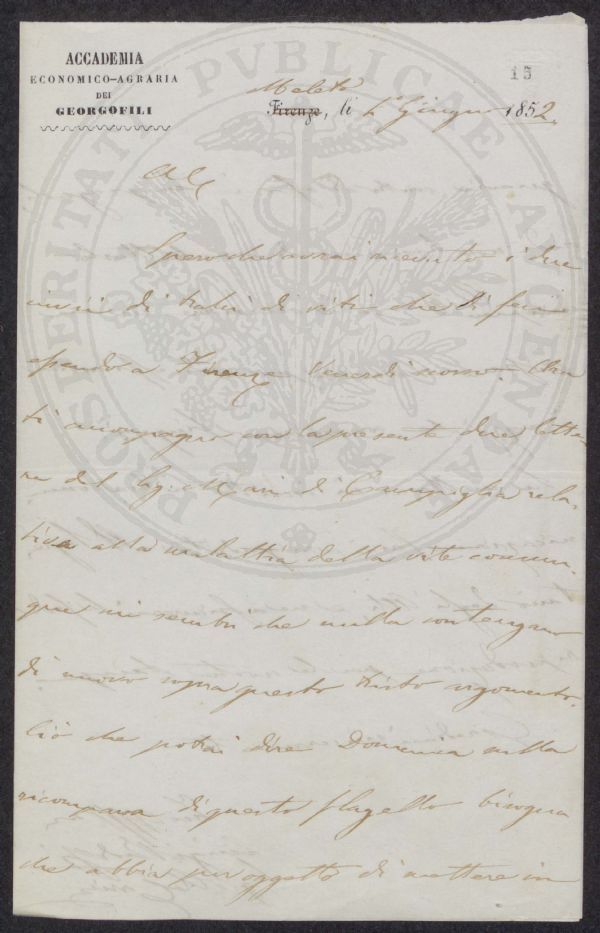 ACCADEMIA
ECONOMICO-AGRARIA
DEI
GEORGOFILI
15
Meleto
Firenze, li 1° Giugno 1852.
A C
Spero che avrai ricevuto i due
invii di tralci di viti che ti feci
a Firenze Venerdì scorso. Ora
ti accompagno con la presente due lette-
re del Sig. Mari di Campiglia rela-
tive alla malattia della vite comun-
que mi sembri che nulla contengano
di nuovo sopra questo tristo argomento.
Ciò che potrai dire Domenica sulla
ricomparsa di questo flagello bisogna
che abbia per oggetto di mettere in
PROSPERITATI PVBLICAE AVGENDAE